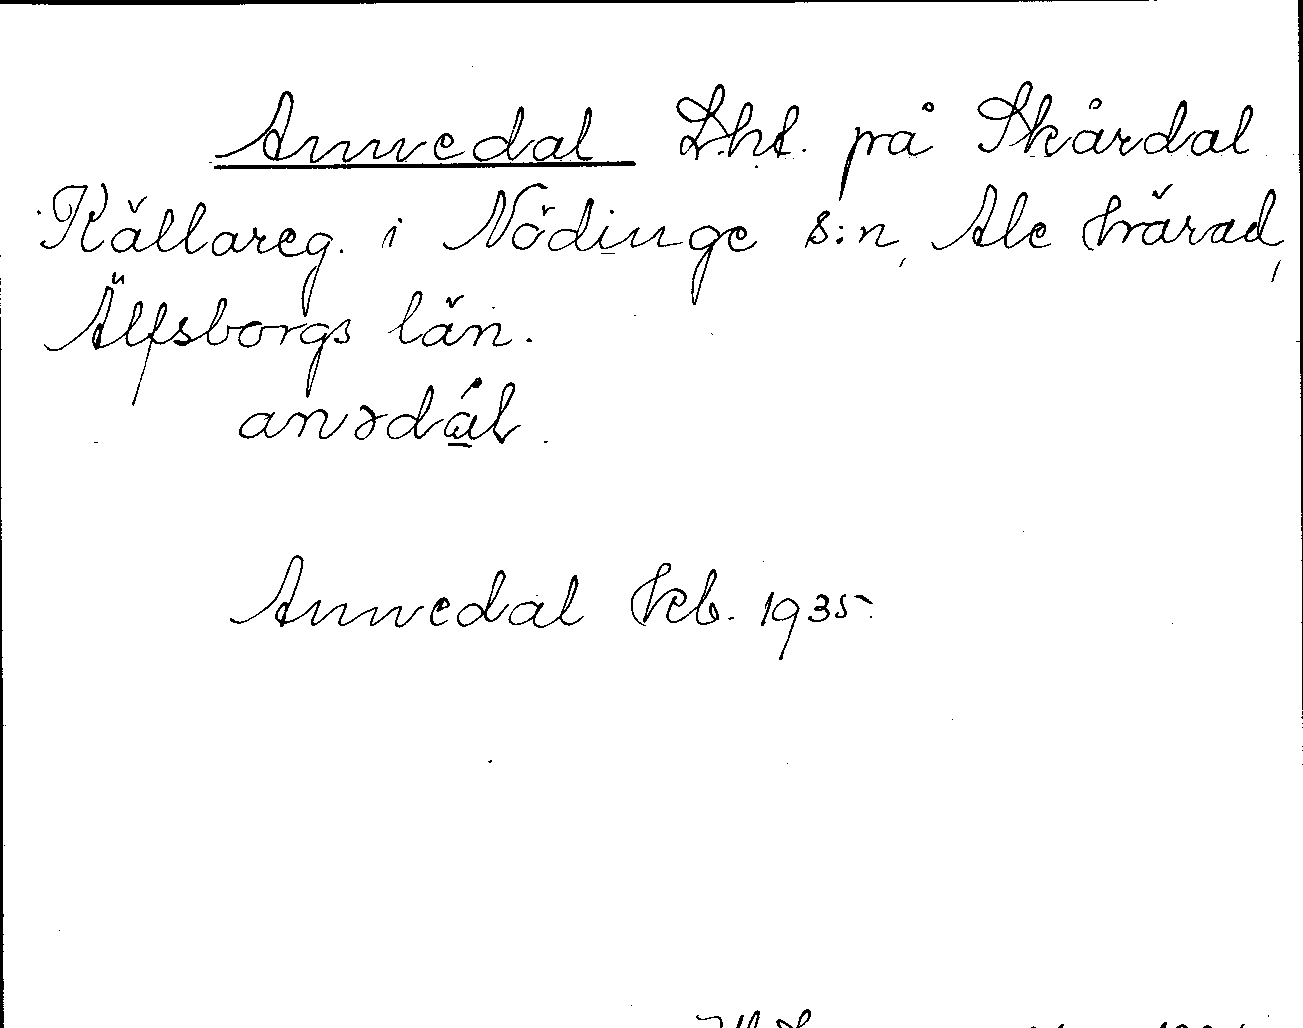 Annedal Lht. på Skårdal
Källareg. i Nödinge s:n, Ale härad,
Älfsborgs län.
anədál.
Annedal hcb. 1935.